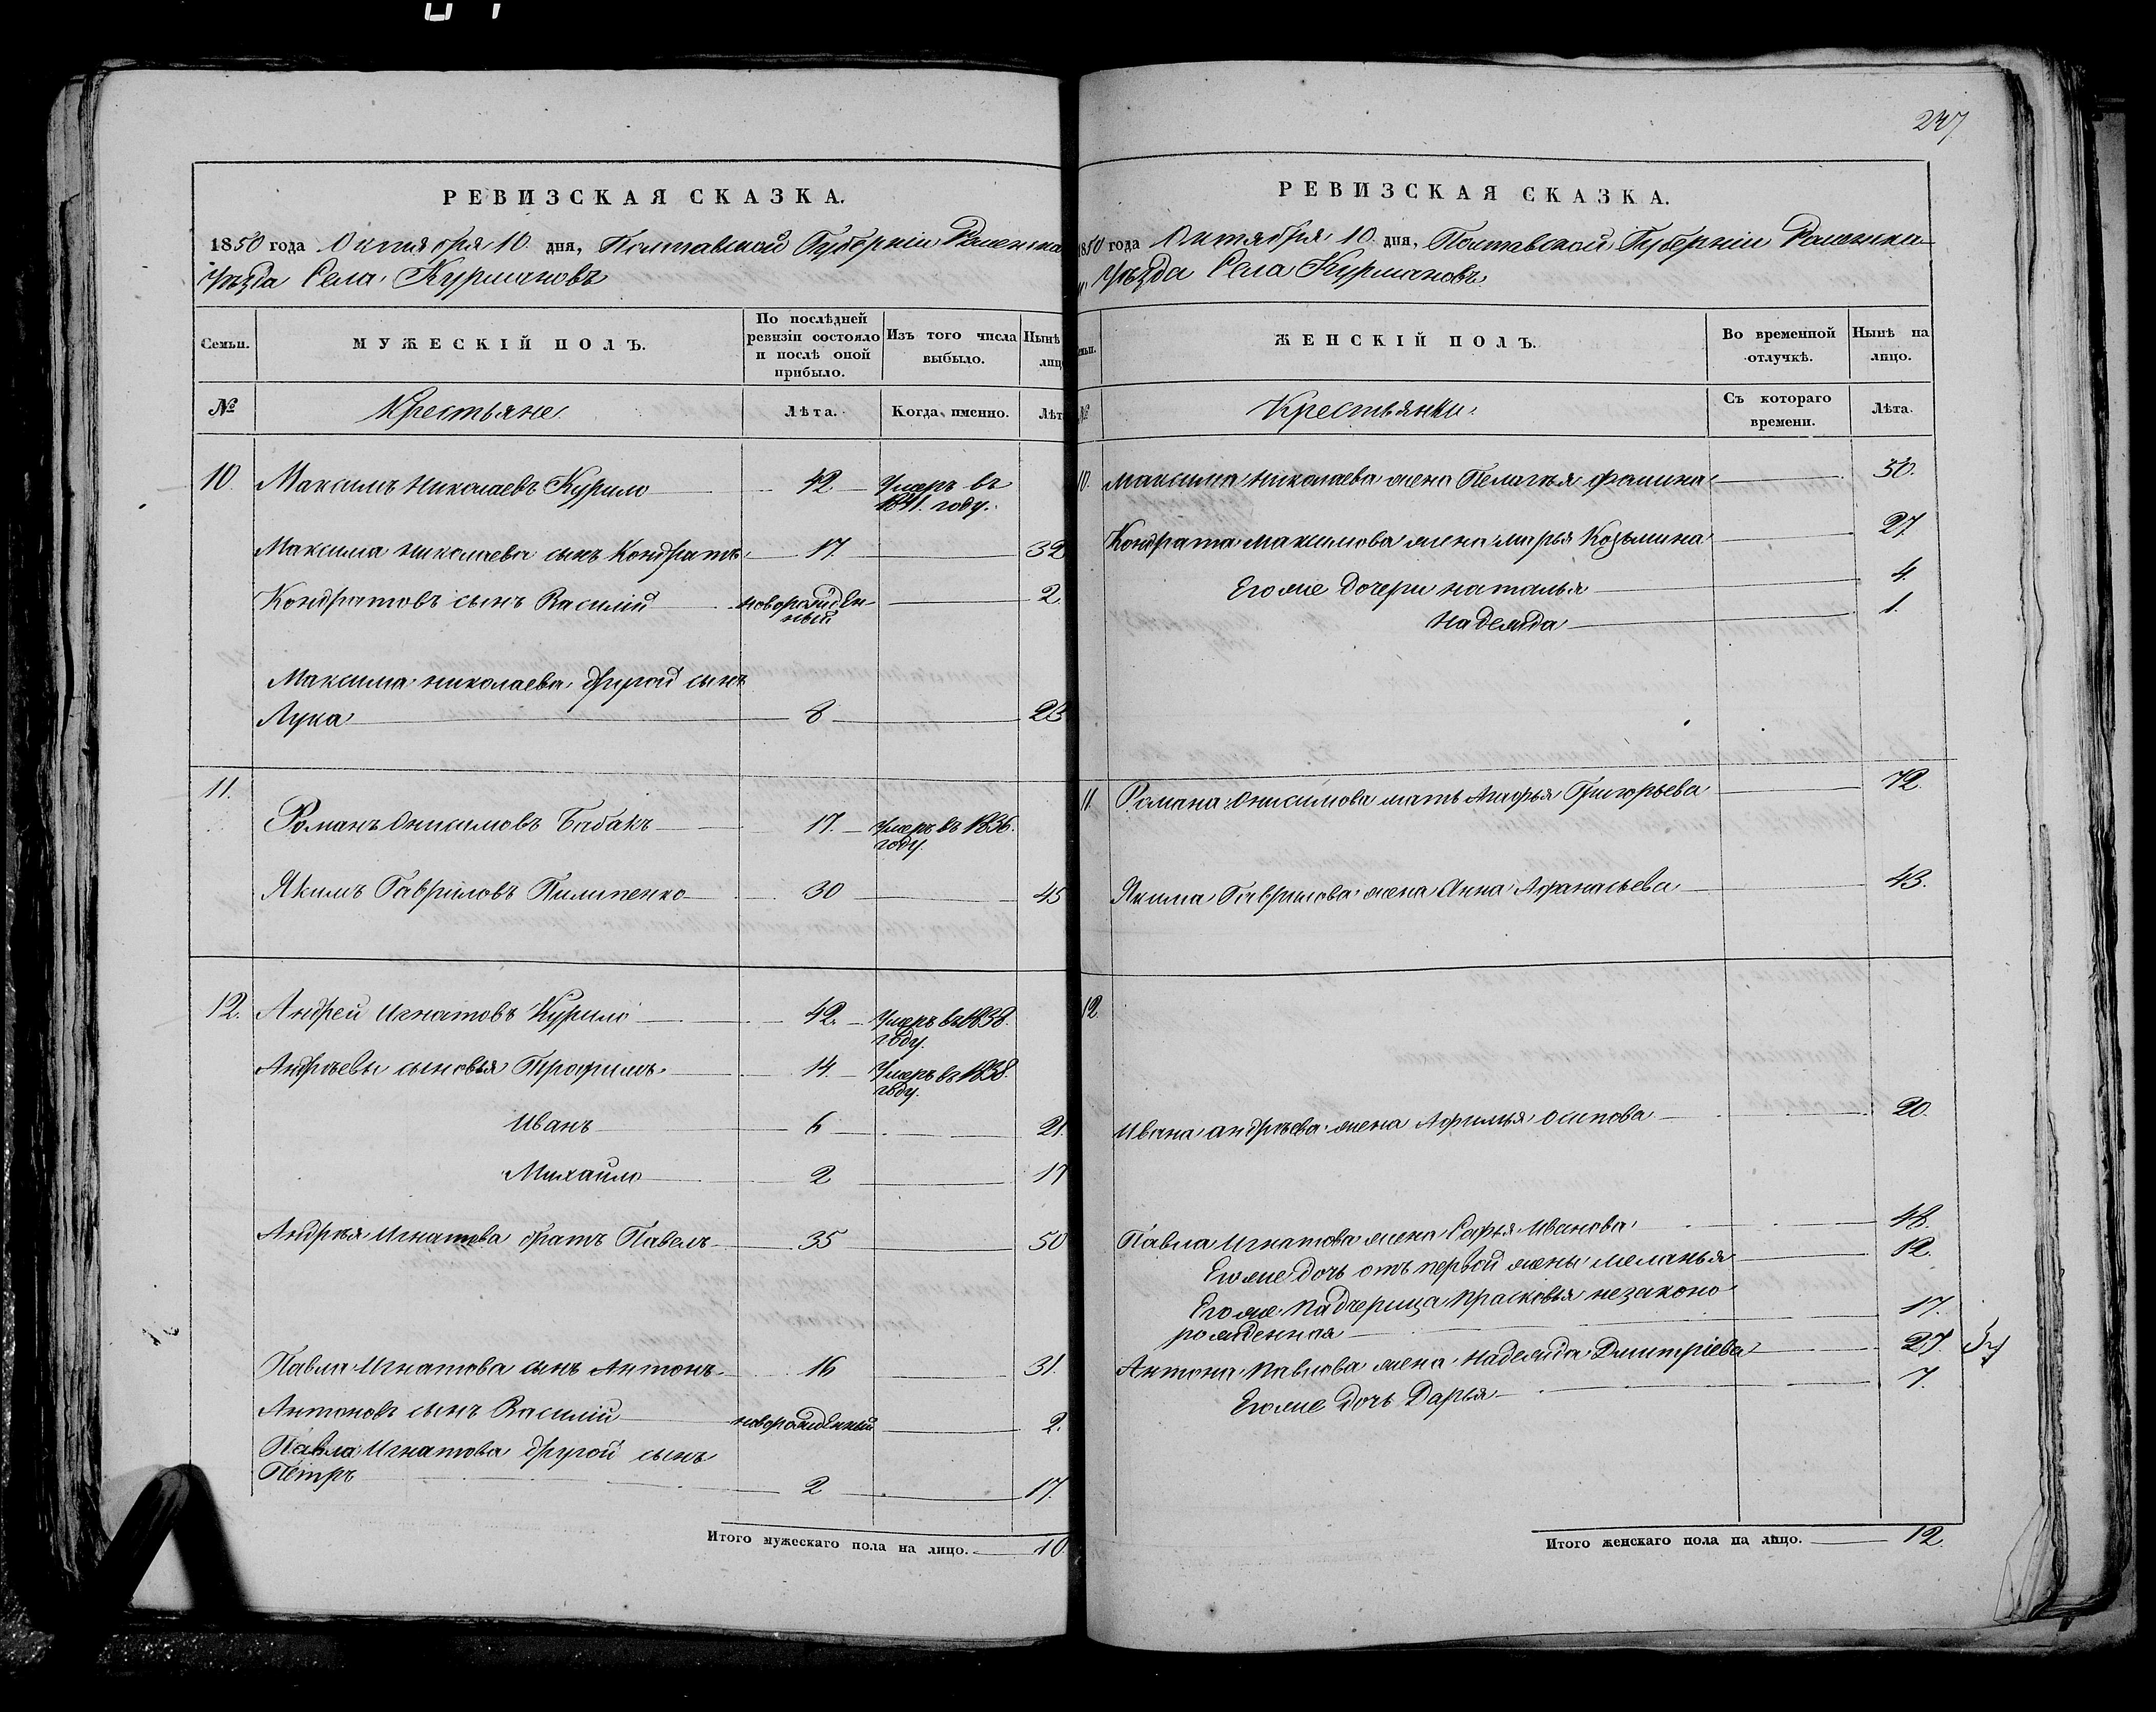 247
РЕВИЗСКАЯ СКАЗКА.
1850 года Октября 10 дня, Полтавской Губерніи Роменска
уѣзда Села Курмановъ
Семьи.
МУЖЕСКІЙ ПОЛЪ.
По послѣдней ревизіи состояло и послѣ оной прибыло.
Изъ того числа выбыло.
Нынѣ лиц
№
Крестьяне
Лѣта.
Когда именно.
Лѣт
10. Максимъ Николаевъ Курило 42 Умеръ въ
1841. году.
Максима Николаева сынъ Кондратъ 17. 32
Кондратовъ сынъ Василій новорожден- 2.
ный
Максима Николаева другой сынъ
Лука 8 23
11.
Романъ Онисимовъ Бабакъ 17. Умеръ въ 1836.
году.
Якимъ Гавриловъ Пилипенко 30 45
12. Андрей Игнатовъ Курило 42. Умеръ въ 1838.
году.
Андреевы сыновья Трофимъ 14. Умеръ въ 1838.
году.
Иванъ 6 21.
Михайло 2 17
Андрея Игнатова братъ Павелъ 35 50
Павла Игнатова сынъ Антонъ 16 31.
Антоновъ сынъ Василій новорожденный 2.
Павла Игнатова другой сынъ
Петръ 2 17.
Итого мужескаго пола на лицо. 10.
РЕВИЗСКАЯ СКАЗКА.
1850 года Октября 10. дня, Полтавской Губерніи Роменска
уѣзда Села Курмановъ
ЖЕНСКІЙ ПОЛЪ.
Во временной отлучкѣ.
Нынѣ на лицо.
№
Крестьянки
Съ котораго времени.
Лѣта.
10. Максима Николаева жена Пелагея Фомина 50.
Кондрата Максимова жена Марья Козьмина 27
Егоже дочери Наталья 4.
Надежда 1.
11. Романа Онисимова мать Агафья Григорьева 72.
Якима Гаврилова жена Анна Афанасьева 43.
12.
Ивана Андреева жена Афимья Осипова 20.
Павла Игнатова жена Софья Иванова 48.
Егоже дочь отъ первой жены Меланья 12.
Егоже падчерица Прасковья незаконо
рожденная 17.
Антона Павлова жена Надежда Дмитріева 27
Егоже дочь Дарья 7.
Итого женскаго пола на лицо. 12.